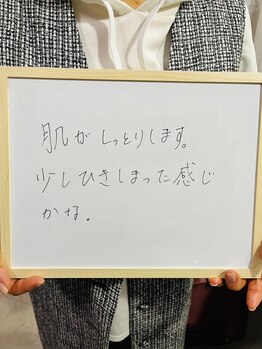 肌がしっとりします。
少しひきしまった感じ
かな。